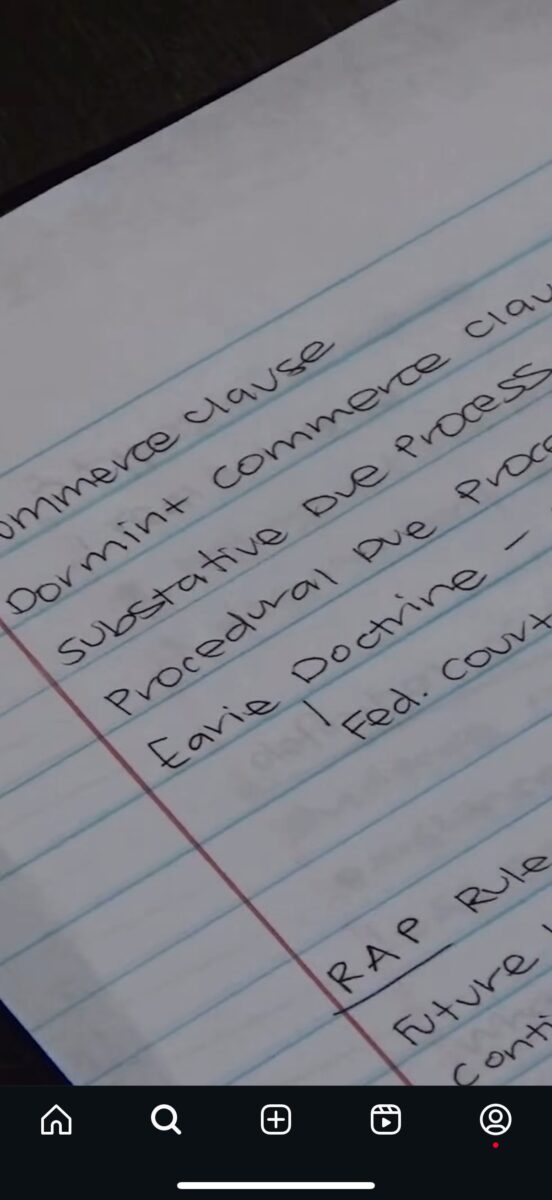 ommerce Clause
Dormint Commerce Clau
Substative Due Process
Procedural Due Proce
Earie Doctrine -
Fed. Court
RAP Rule
Future
Conti